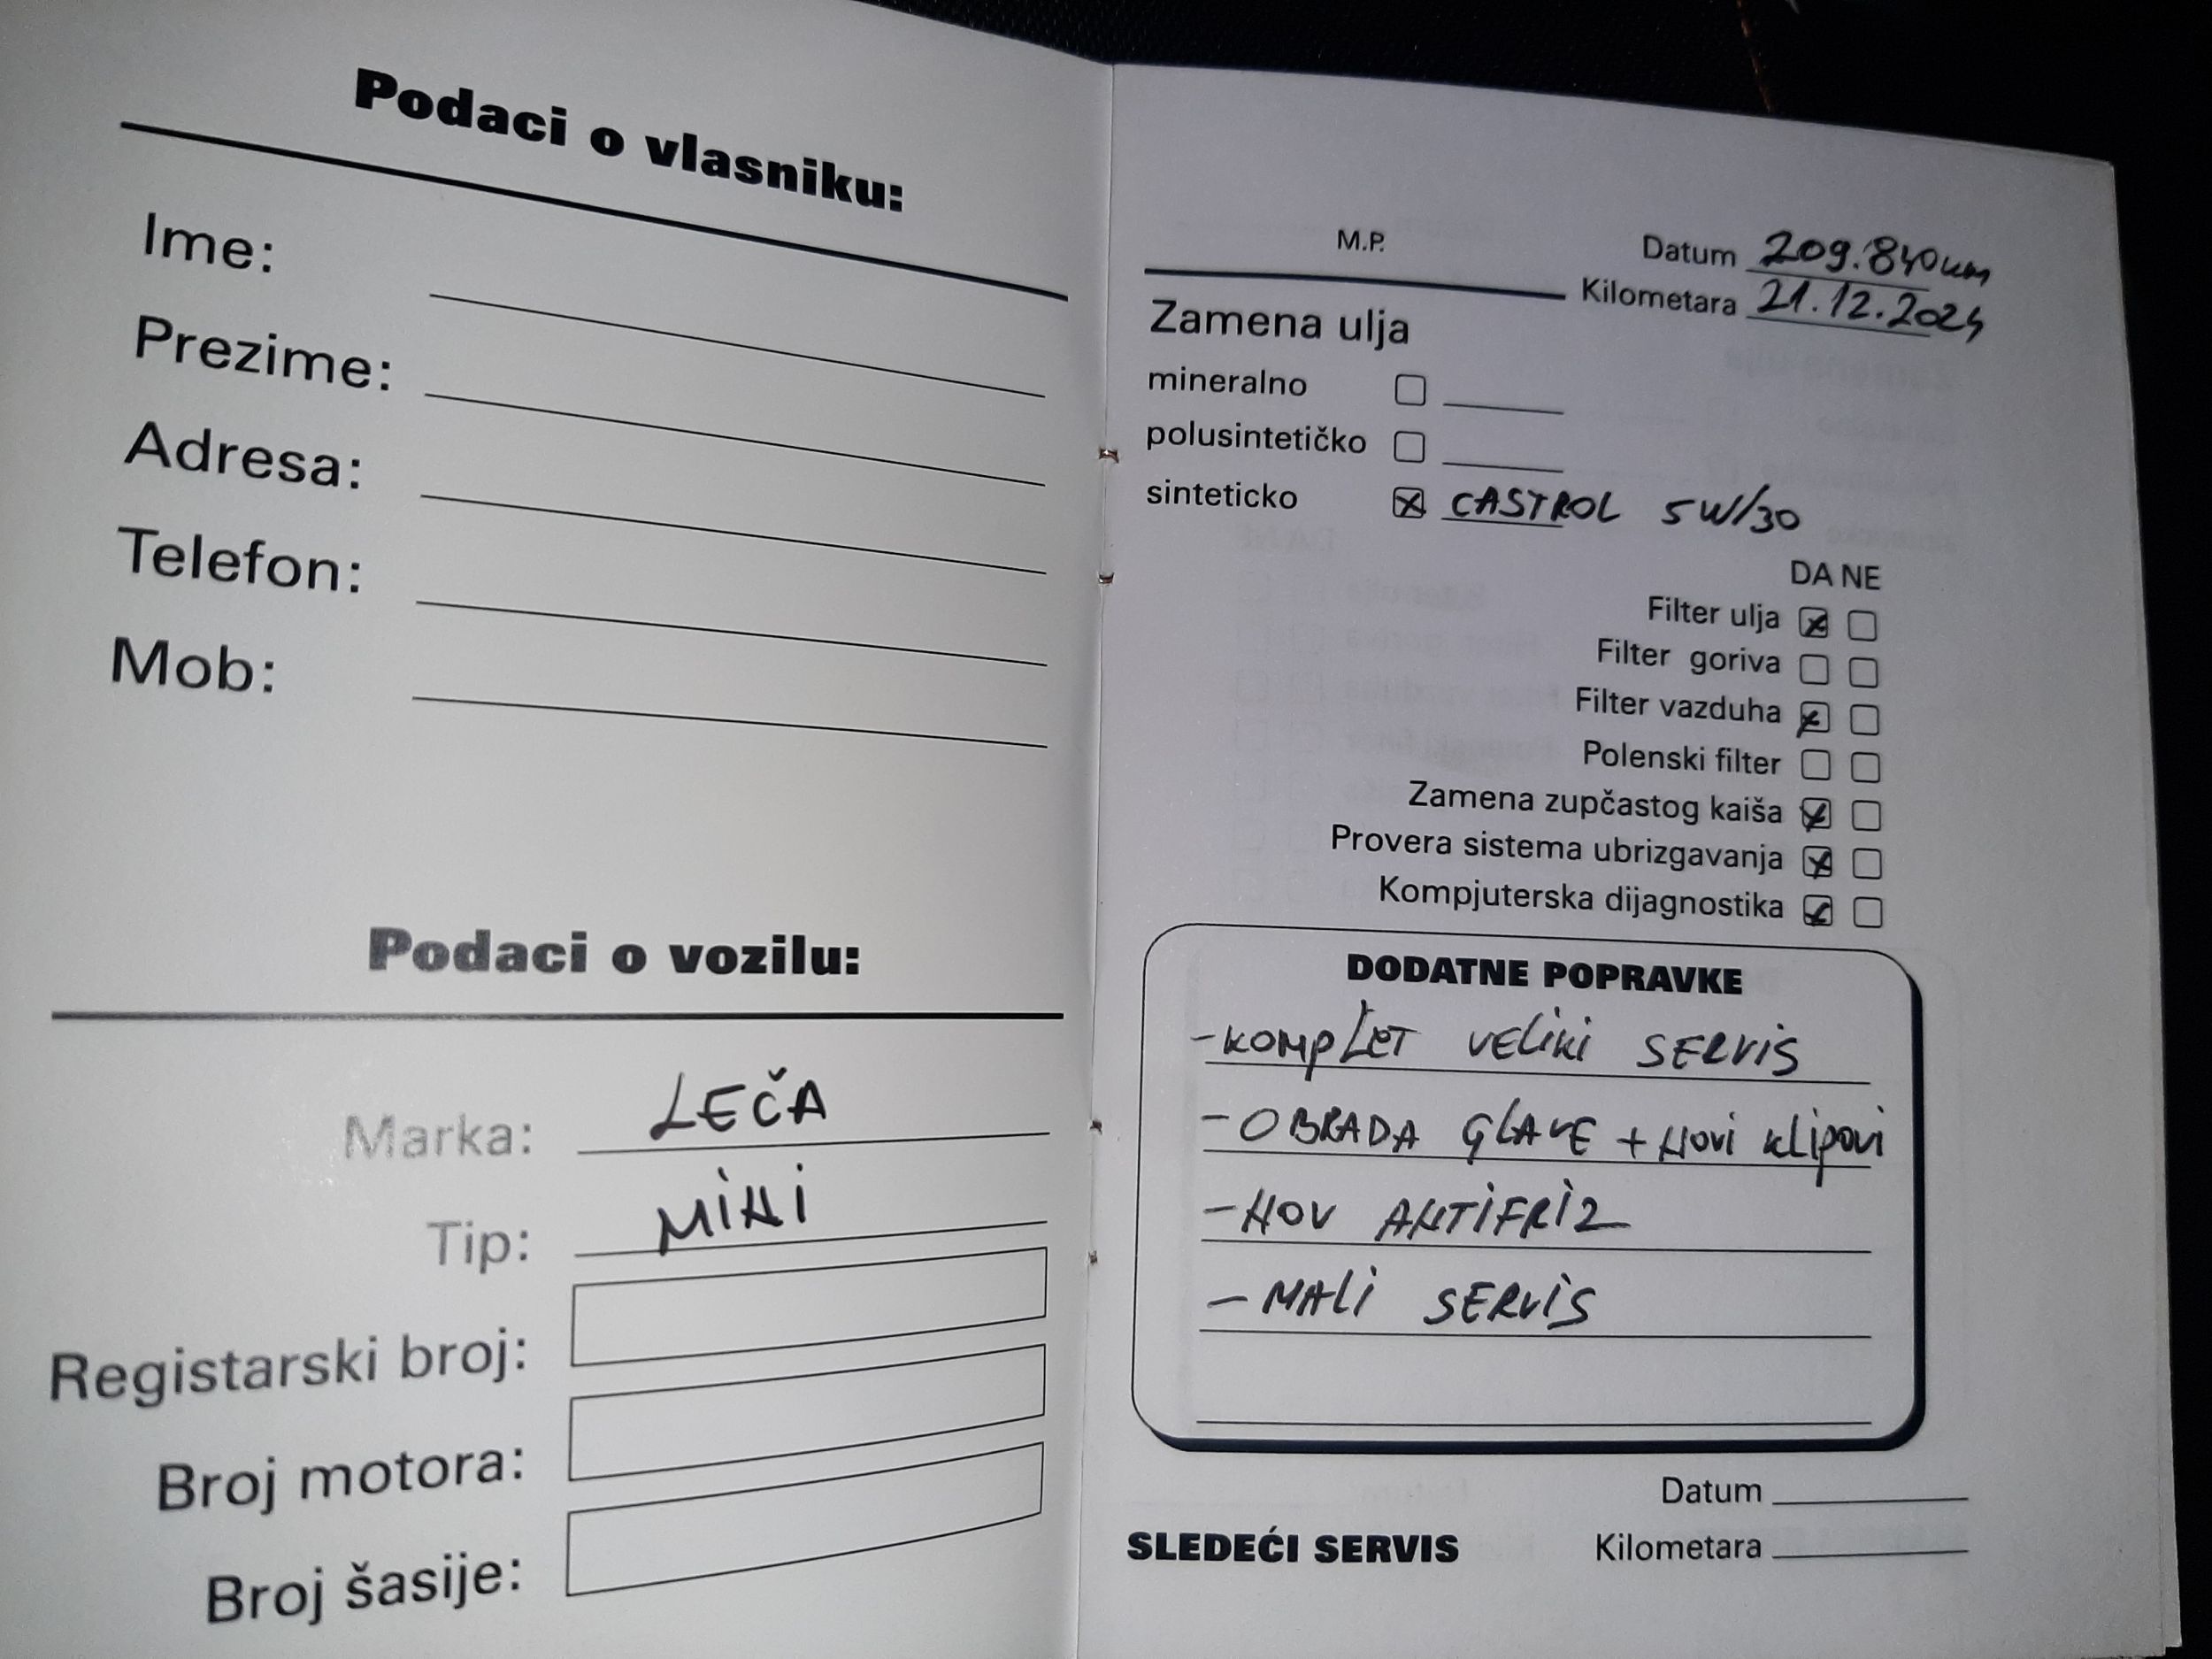 Podaci o vlasniku:
Ime:
Prezime:
Adresa:
Telefon:
Mob:
Podaci o vozilu:
Marka: LEČA
Tip: MiNi
Registarski broj:
Broj motora:
Broj šasije:
M.P.
Datum 209.840km
Kilometara 21.12.2024
Zamena ulja
mineralno
polusintetičko
sinteticko CASTROL 5W/30
DA NE
Filter ulja
Filter goriva
Filter vazduha
Polenski filter
Zamena zupčastog kaiša
Provera sistema ubrizgavanja
Kompjuterska dijagnostika
DODATNE POPRAVKE
-KOMPLET VELiKi SERViS
- OBRADA GLAVE + Novi klipovi
- NOV ANTiFRiZ
- MALi SERViS
Datum
SLEDEĆI SERVIS Kilometara